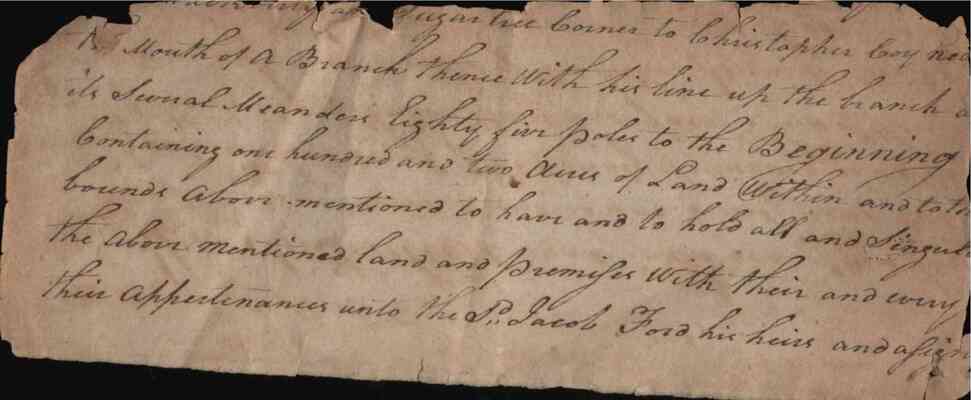 Sugartree Corner to Christopher Coy nea
Mouth of A Branch thence With his line up the branch
its Several Meanders Eighty five poles to the Beginning
Containing one hundred and two Acres of Land Within and to th
bounds Above mentioned to have and to hold all and Singul
the above mentioned land and premises With their and every
their Appertenances unto the Sd. Jacob Ford his heirs and assign